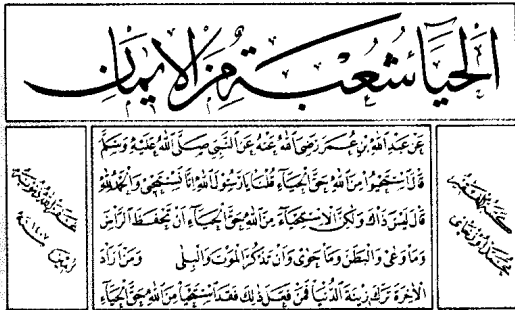 الحياء شعبة من الإيمان
عَنْ عَبْدِ اللهِ بْنِ عُمَرَ رَضِيَ اللهُ عَنْهُ عَنِ النَّبِيِّ صَلَّى اللهُ عَلَيْهِ وَسَلَّمَ
قَالَ اسْتَحْيُوا مِنَ اللهِ حَقَّ الْحَيَاءِ قُلْنَا يَا رَسُولَ اللهِ إِنَّا نَسْتَحْيِي وَالْحَمْدُ لِلهِ
قَالَ لَيْسَ ذَاكَ وَلٰكِنَّ الْاِسْتِحْيَاءَ مِنَ اللهِ حَقَّ الْحَيَاءِ أَنْ تَحْفَظَ الرَّأْسَ
وَمَا وَعَى وَالْبَطْنَ وَمَا حَوَى وَأَنْ تَذْكُرَ الْمَوْتَ وَالْبِلَى وَمَنْ أَرَادَ
الْآخِرَةَ تَرَكَ زِينَةَ الدُّنْيَا فَمَنْ فَعَلَ ذٰلِكَ فَقَدِ اسْتَحْيَا مِنَ اللهِ حَقَّ الْحَيَاءِ
كتبه الفقير
محمد اوزجاى